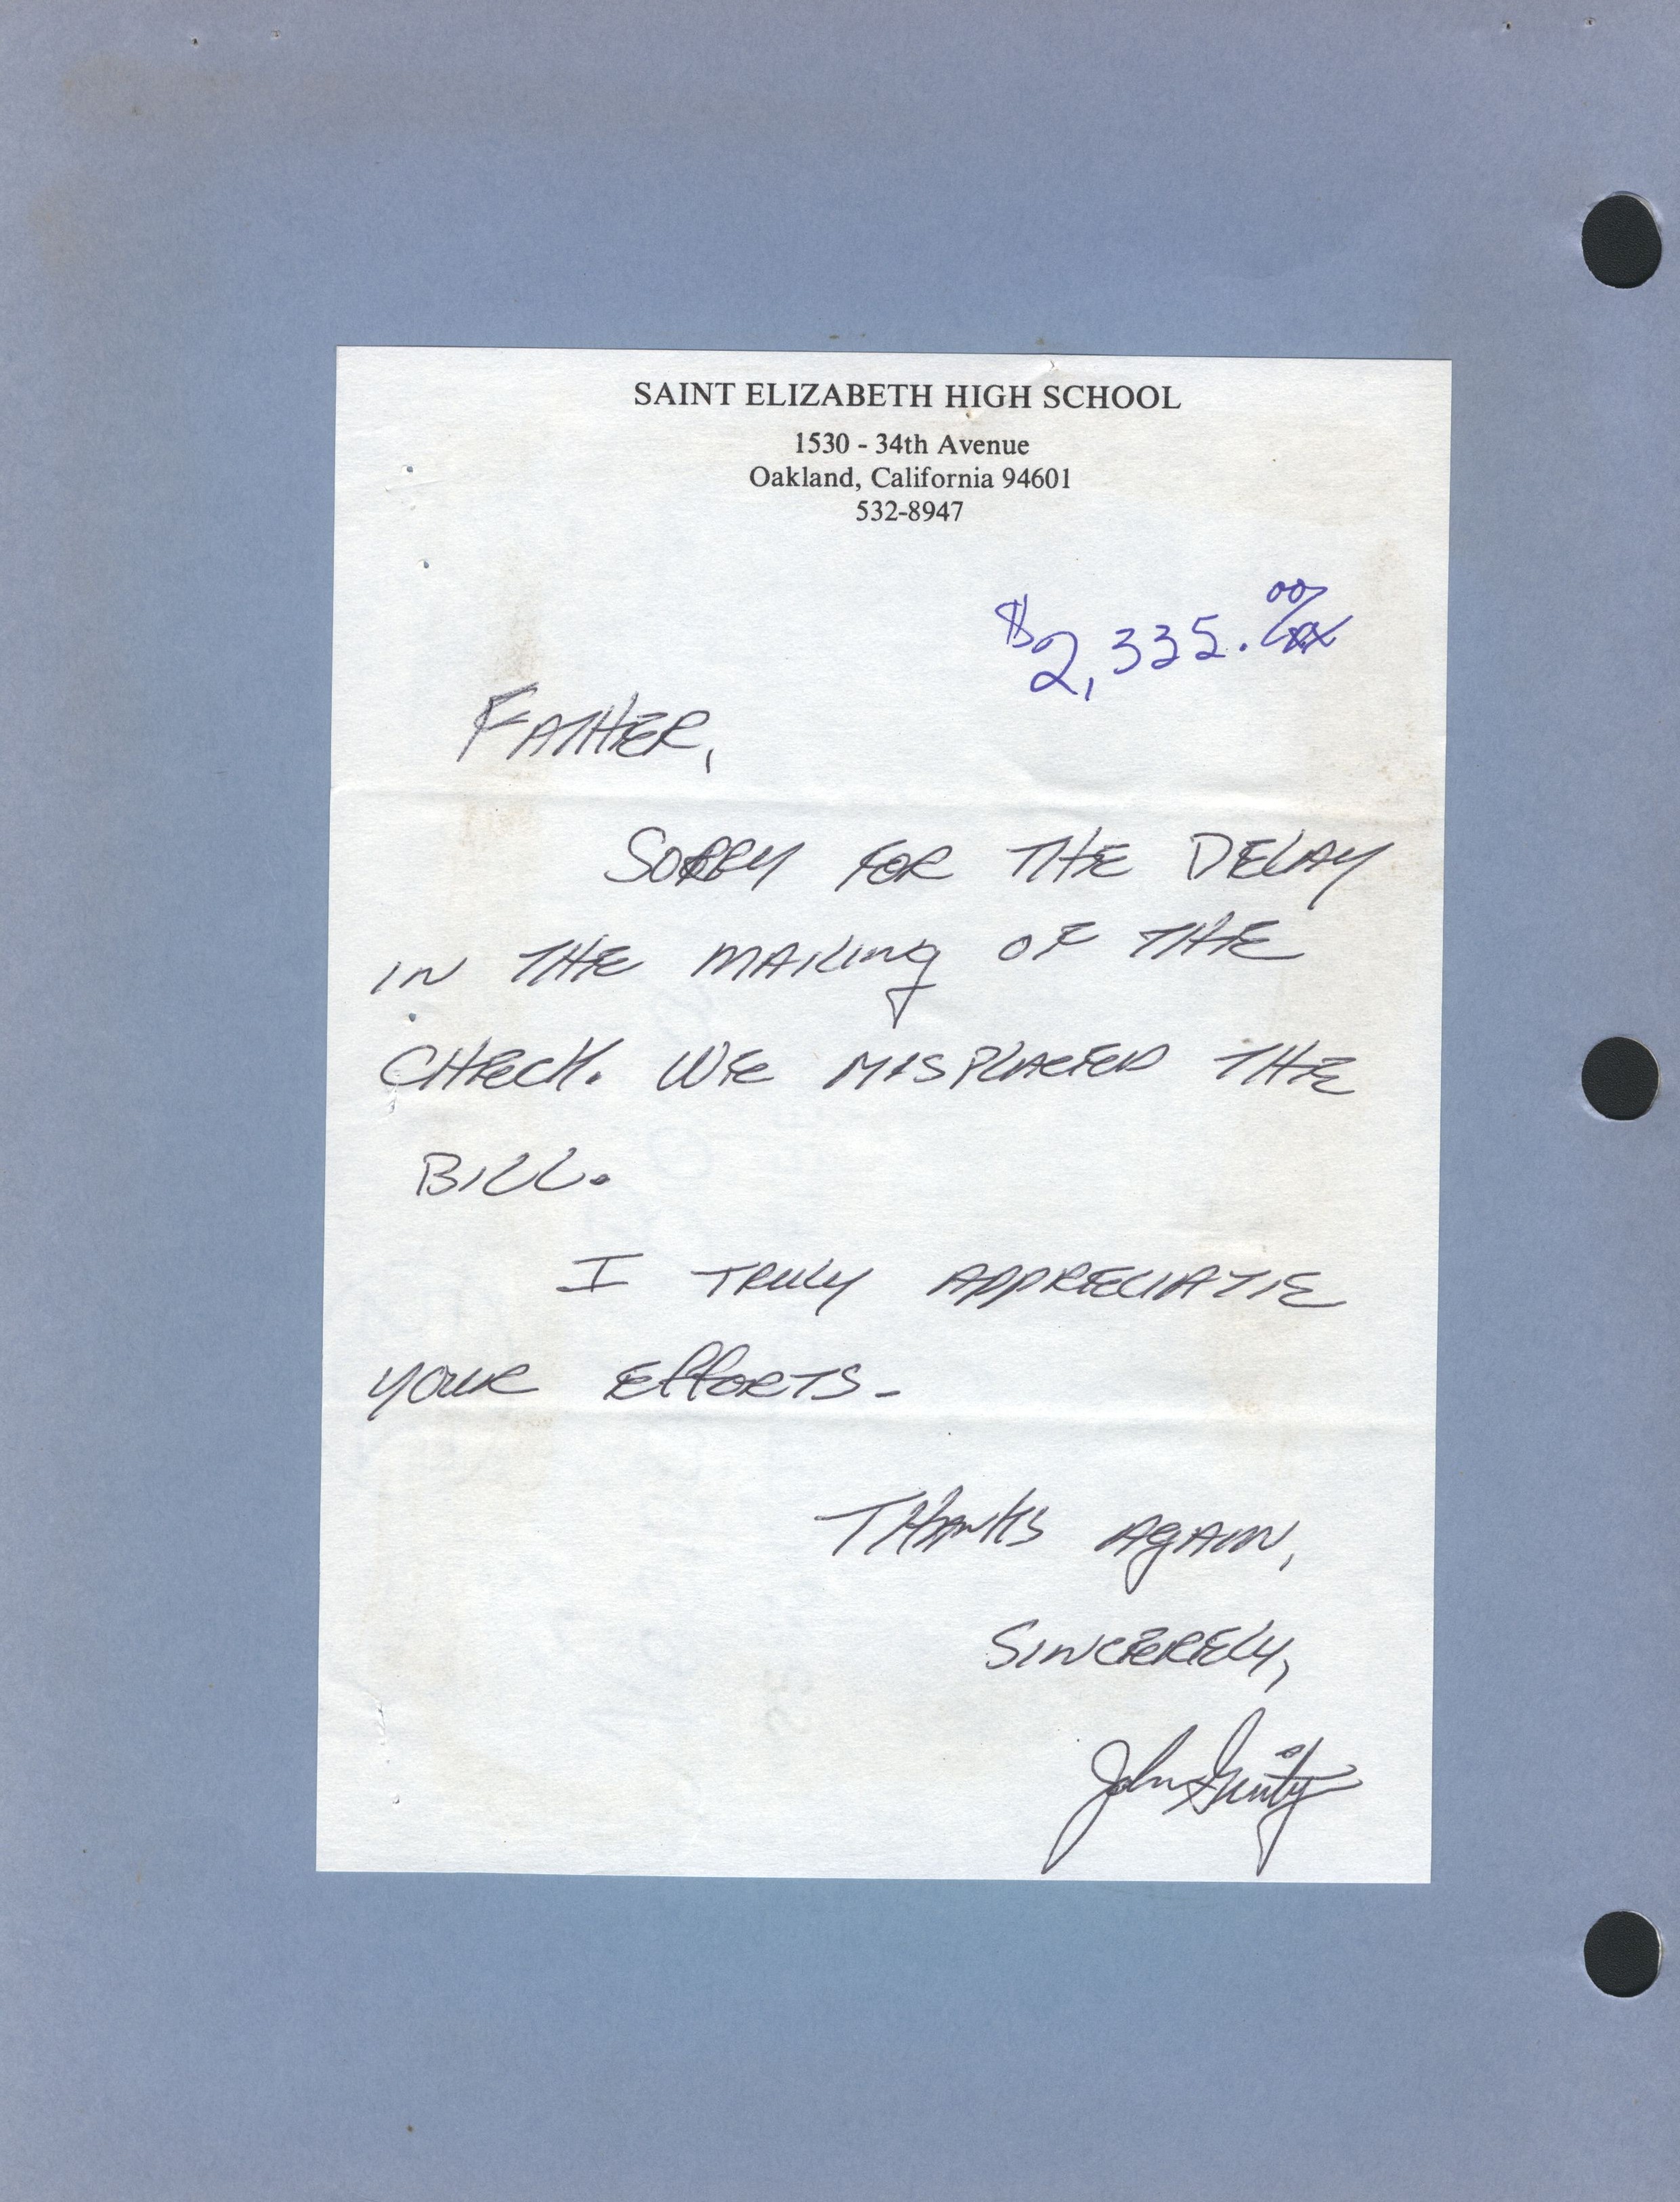 SAINT ELIZABETH HIGH SCHOOL
1530 - 34th Avenue
Oakland, California 94601
532-8947
$2,335.00/xx
FATHER,
SORRY FOR THE DELAY
IN THE MAILING OF THE
CHECK. WE MISPLACED THE
BILL.
I TRULY APPRECIATE
YOUR EFFORTS-
THANKS AGAIN,
SINCERELY,
John